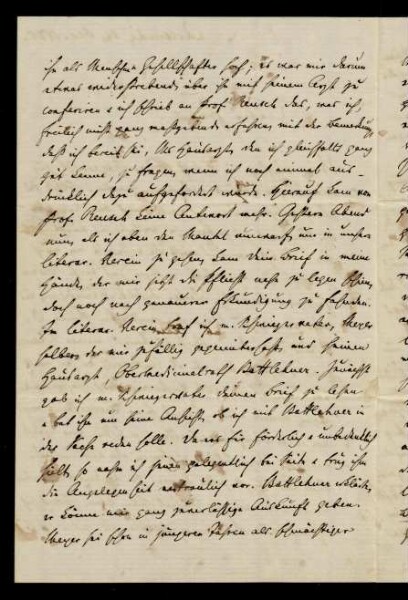 ihn als Menschen u. Gesellschafter hoch; es war mir darum
etwas widerstrebend, über ihn mit seinem Arzt zu
conferiren u. ich schrieb an Prof. Reusch das, was ich,
freilich nicht ganz maßgebend erfahren, mit der Bemerkung
daß ich bereit sei, den Hausarzt, den ich gleichfalls ganz
gut kenne, zu fragen, wenn ich noch einmal aus-
drücklich dazu aufgefordert würde. Hierauf kam von
Prof. Reusch keine Antwort mehr. Gestern Abend
nun, als ich eben den Mantel umwarf, um in unsern
literar. Verein zu gehen, kam dein Brief in meine
Hände, der mir jetzt die Pflicht nahe zu legen schien,
doch noch nach genauerer Erkundigung zu fahnden.
Im literar. Verein traf ich m. Schwiegervater, Meyer
selbst, der mir zufällig gegenübersaß, und seinen
Hausarzt, Obermedicinalrath Battlehner. Zunächst
gab ich m. Schwiegervater deinen Brief zu lesen
u. bat ihn um seine Ansicht, ob ich mit Battlehner in
der Sache reden solle. Da er's für förderlich u. unbedenklich
hielt, so nahm ich jenen gelegentlich bei Seite u. trug ihm
die Angelegenheit vertraulich vor. Battlehner erklärte,
er könne mir ganz zuverlässige Auskunft geben.
Meyer sei schon in jüngeren Jahren als schmächtiger